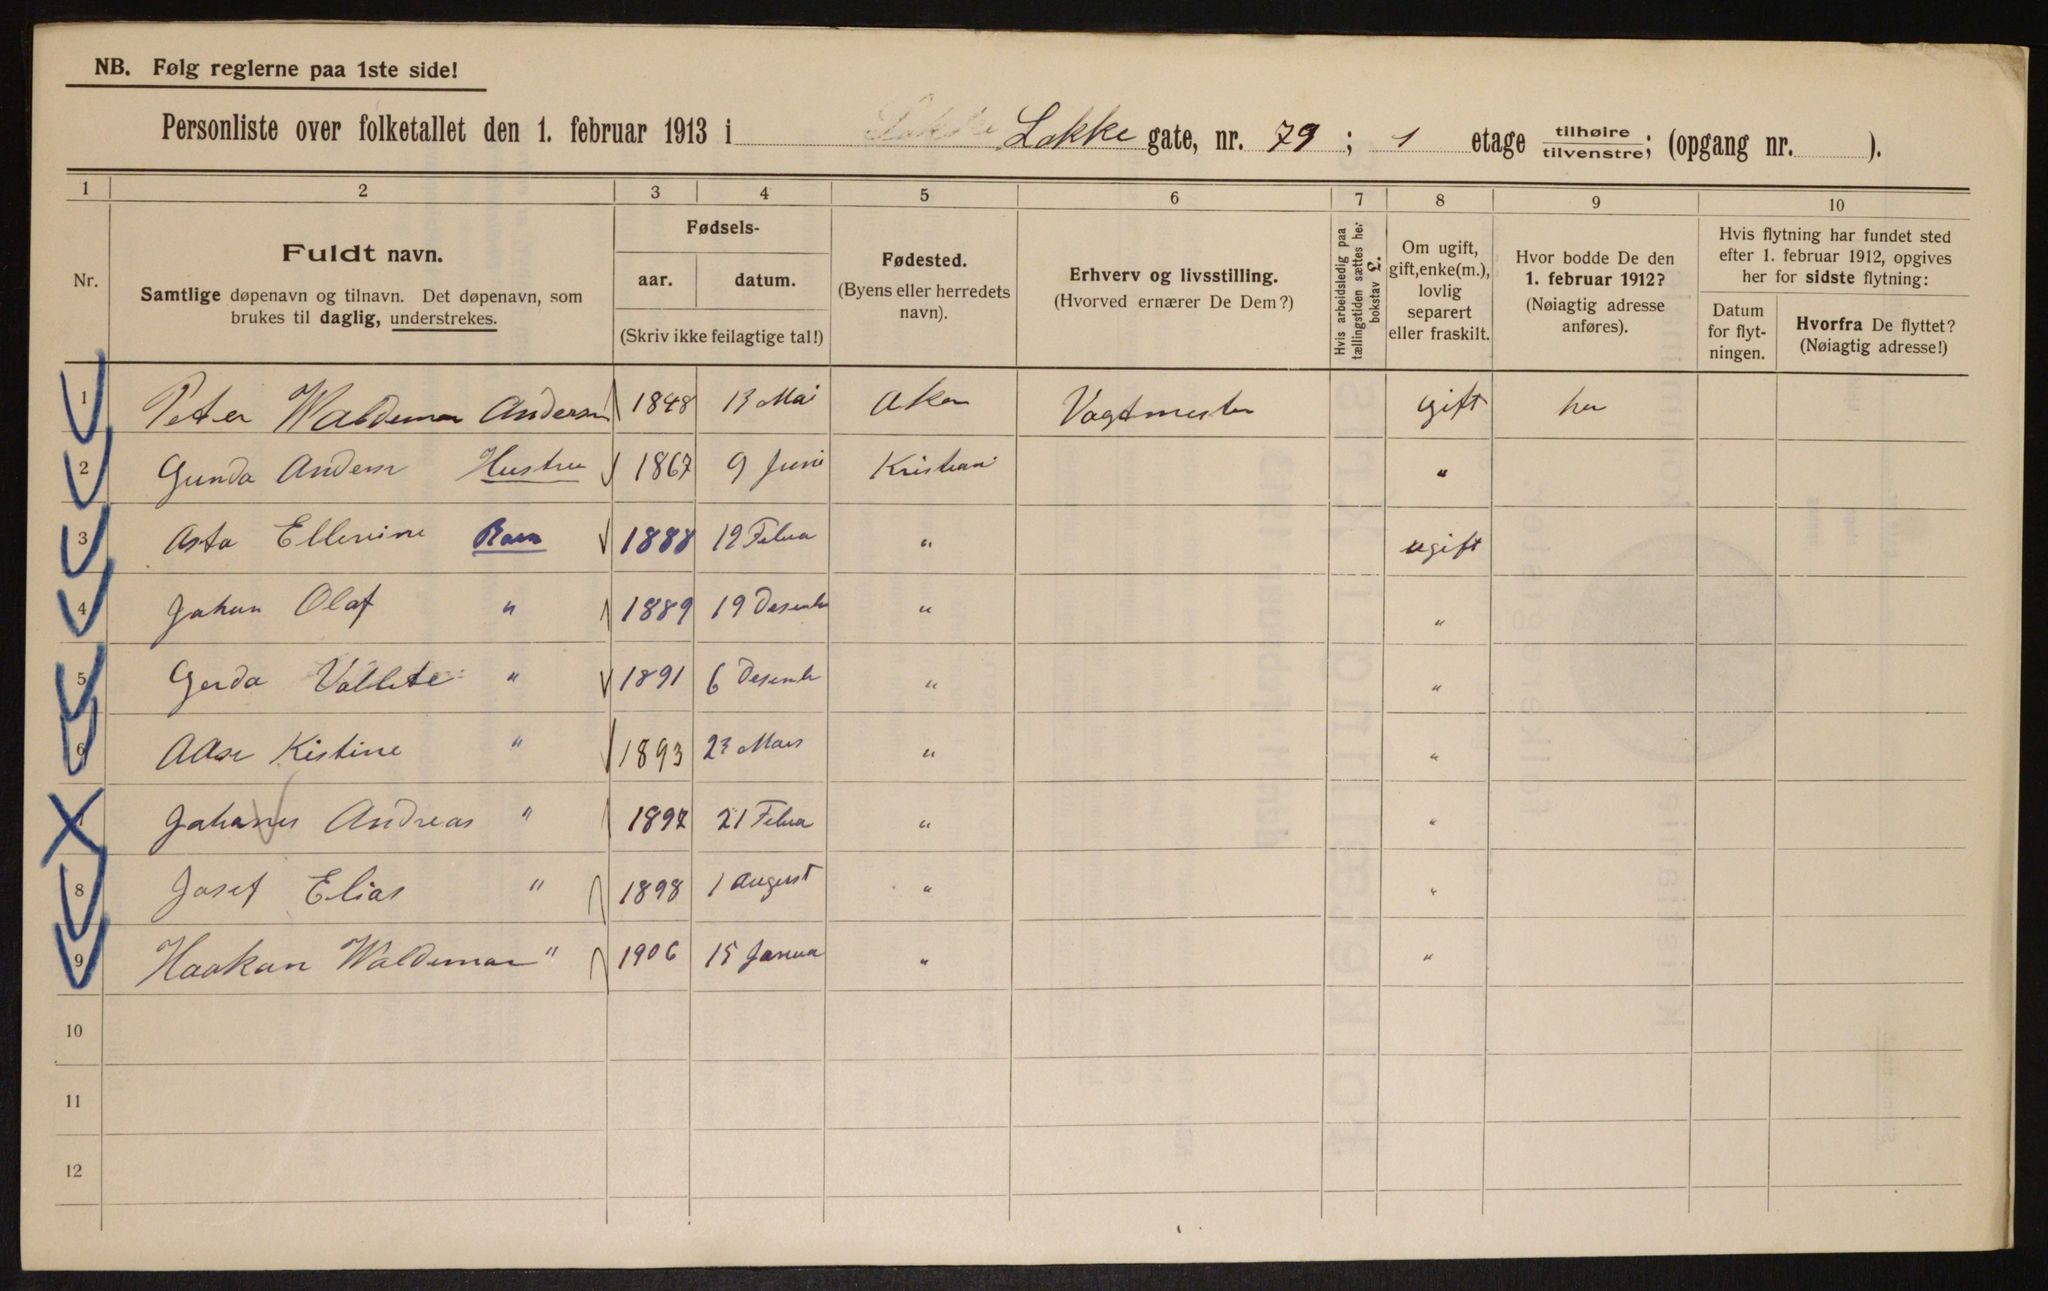 NB. Følg reglerne paa 1ste side!
Personliste over folketallet den 1. februar 1913 i Lakke gate, nr. 79; 1 etage tilhøire tilvenstre; (opgang nr. ).
1 2 3 4 5 6 7 8 9 10
Nr.
Fuldt navn.
Samtlige døpenavn og tilnavn. Det døpenavn, som
brukes til daglig, understrekes.
Fødsels-
aar. datum.
(Skriv ikke feilagtige tal!)
Fødested.
(Byens eller herredets
navn).
Erhverv og livsstilling.
(Hvorved ernærer De Dem?)
Hvis arbeidsledig paa
tællingstiden sættes her
bokstav L.
Om ugift,
gift, enke(m.),
lovlig
separert
eller fraskilt.
Hvor bodde De den
1. februar 1912?
(Nøiagtig adresse
anføres).
Hvis flytning har fundet sted
efter 1. februar 1912, opgives
her for sidste flytning:
Datum
for flyt-
ningen.
Hvorfra De flyttet?
(Nøiagtig adresse!)
1 Peter Waldemar Andersen 1848 13 Mai Aker Vagtmester gift her
2 Gunda Anderse Hustru 1867 9 Juni Kristiani "
3 Asta Ellenine Barn 1888 12 Februa " ugift
4 Johan Olaf " 1889 19 Desemb " "
5 Gerda " 1891 6 Desemb " "
6 Aase Kistine " 1893 23 Mars " "
7 Johanes Andreas " 1897 21 Februa " "
8 Josef Elias " 1898 1 August " "
9 Haakon Waldemar " 1906 15 Janua " "
10
11
12